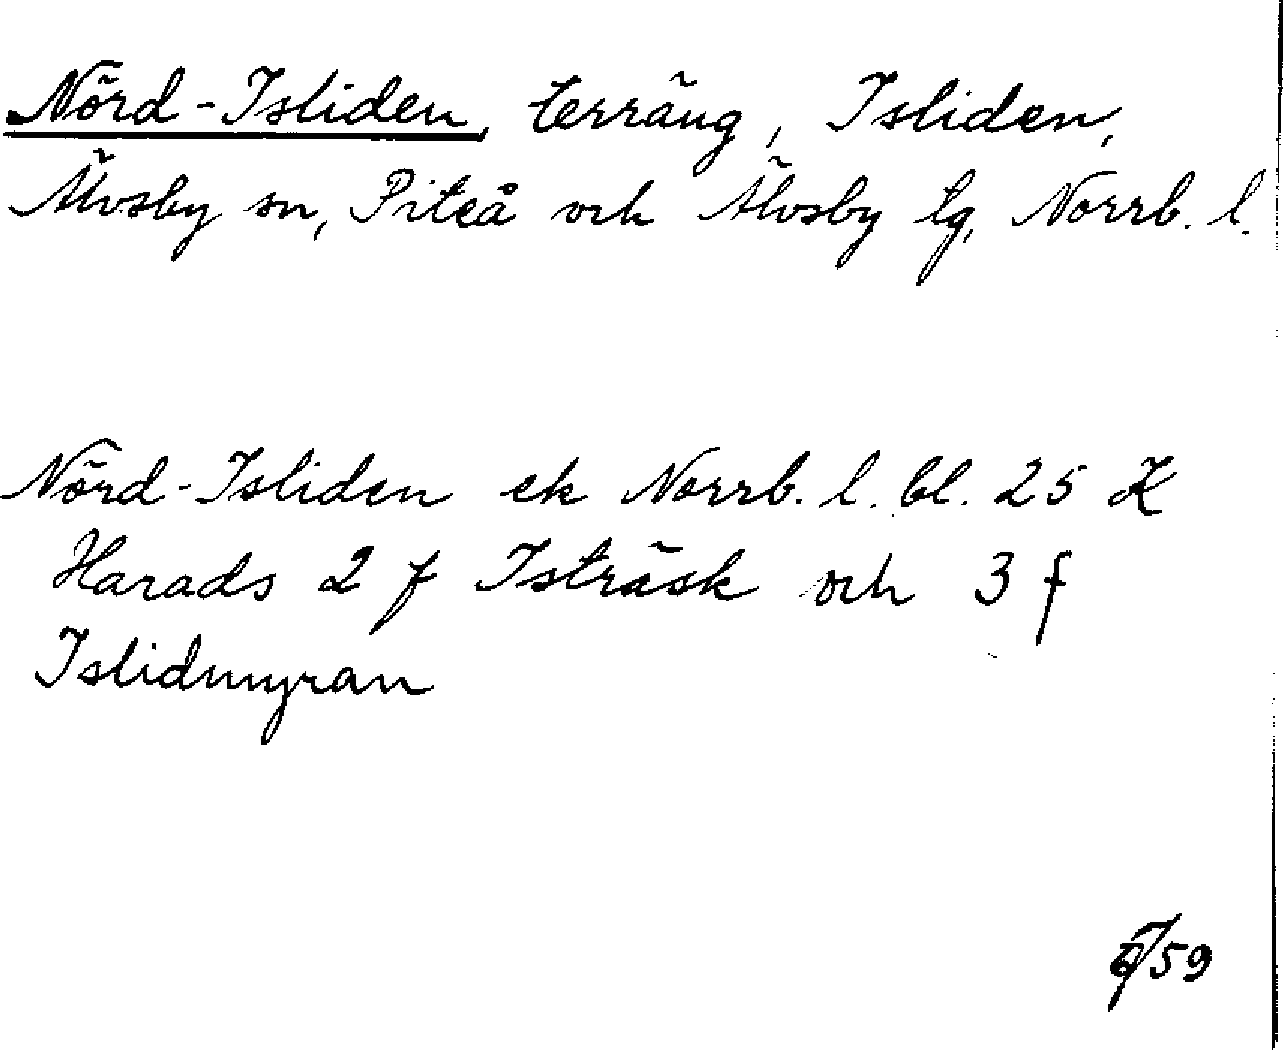 Nörd-Isliden, terräng, Isliden,
Älvsby sn, Piteå och Älvsby tg, Norrb. l.
Nörd-Isliden ek Norrb. l. bl. 25 K
Harads 2 f Isträsk och 3 f
Islidmyran
59